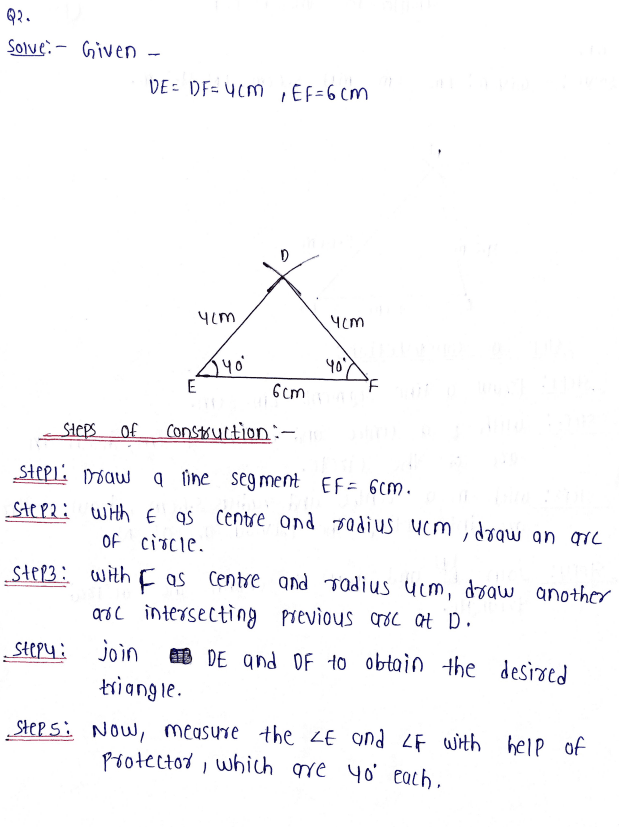 Q2.
Solve:- Given -
DE = DF = 4cm , EF = 6cm
D
4cm
4cm
40°
40°
E
F
6cm
Steps of construction:-
Step1: Draw a line segment EF = 6cm.
Step2: with E as centre and radius 4cm, draw an arc
of circle.
Step3: with F as centre and radius 4cm, draw another
arc intersecting previous arc at D.
Step4: join DE and DF to obtain the desired
triangle.
Step5: Now, measure the ∠E and ∠F with help of
Protector, which are 40° each.